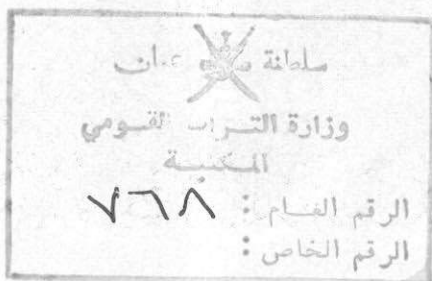 سلطنة عمان
وزارة التراث القومي
المكتبة
الرقم العام : ٧٦٨
الرقم الخاص :